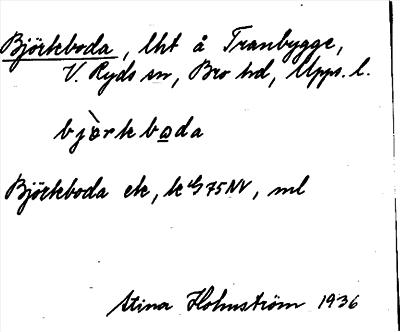 Björkboda, lht å Tranbygge,
V. Ryds sn, Bro hd, Upps. l.
bjò̱rkbo̱da
Björkboda ek, k 75 NV, ml
Stina Holmström 1936